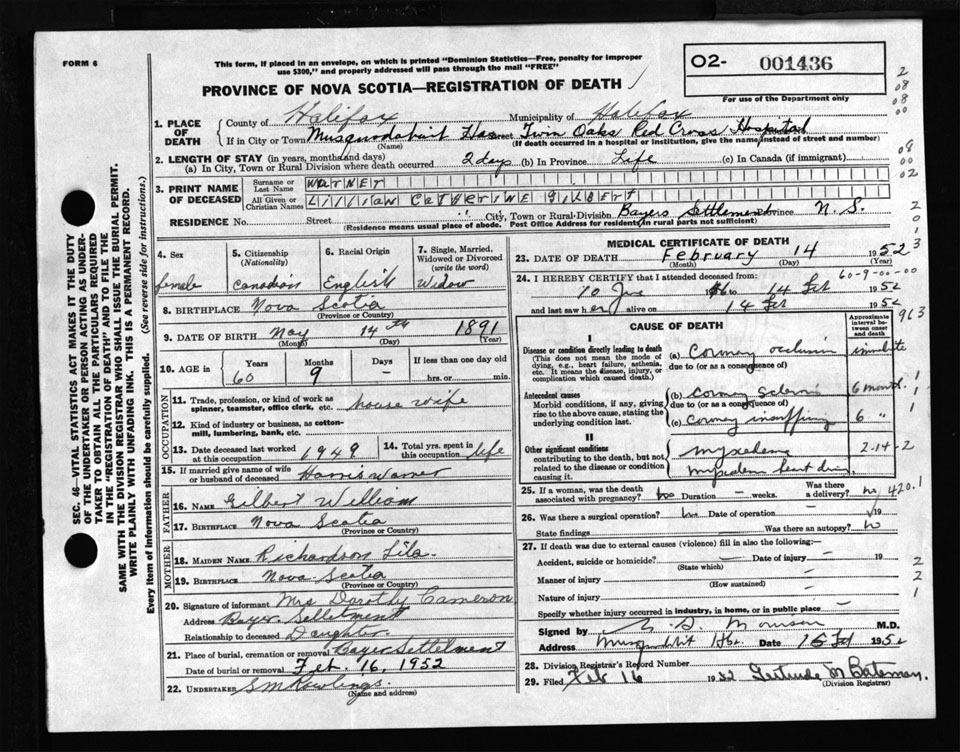 FORM 6
This form, if placed in an envelope, on which is printed "Dominion Statistics—Free, penalty for improper
use $300," and properly addressed will pass through the mail "FREE"
O2- 001436
For use of the Department only
PROVINCE OF NOVA SCOTIA—REGISTRATION OF DEATH
1. PLACE OF DEATH
County of Halifax Municipality of Halifax
If in City or Town Musquodoboit Har Street Twin Oaks Red Cross Hospital
(If death occurred in a hospital or institution, give the name instead of street and number)
2. LENGTH OF STAY (in years, months and days)
(a) In City, Town or Rural Division where death occurred 2 days (b) In Province Life (c) In Canada (if immigrant)
3. PRINT NAME OF DECEASED
Surname or Last Name Warner
All Given or Christian Names Lillian Catherine Gilbert
RESIDENCE No. Street City, Town or Rural Division Bayers Settlement Province N. S.
(Residence means usual place of abode. Post Office Address for residents in rural parts not sufficient)
4. Sex
female
5. Citizenship
(Nationality)
Canadian
6. Racial Origin
English
7. Single, Married, Widowed or Divorced
(write the word)
Widow
8. BIRTHPLACE Nova Scotia
(Province or Country)
9. DATE OF BIRTH May 14th 1891
(Month) (Day) (Year)
10. AGE in Years Months Days If less than one day old
60 9 - hrs. or min.
OCCUPATION
11. Trade, profession or kind of work as
spinner, teamster, office clerk, etc. house wife
12. Kind of industry or business, as cotton-
mill, lumbering, bank, etc.
13. Date deceased last worked at this occupation 1949
14. Total yrs. spent in this occupation life
15. If married give name of wife or husband of deceased Harris Warner
FATHER
16. NAME Gilbert William
17. BIRTHPLACE Nova Scotia
(Province or Country)
MOTHER
18. MAIDEN NAME Richardson Lila
19. BIRTHPLACE Nova Scotia
(Province or Country)
20. Signature of informant Mrs Dorothy Cameron
Address Bayer Settlement
Relationship to deceased Daughter
21. Place of burial, cremation or removal Bayer Settelment
Date of burial or removal Feb. 16, 1952
22. UNDERTAKER S M Rowlings.
(Name and address)
MEDICAL CERTIFICATE OF DEATH
23. DATE OF DEATH February 14 1952
(Month) (Day) (Year)
60-9-00-00
24. I HEREBY CERTIFY that I attended deceased from:
10 to 14 Feb 1952
and last saw her alive on 14 Feb 1952
963
CAUSE OF DEATH
Approximate interval between onset and death
I
Disease or condition directly leading to death
(This does not mean the mode of dying, e.g., heart failure, asthenia, etc. It means the disease, injury, or complication which caused death.)
(a) Coronary occlusion
due to (or as a consequence of)
Antecedent causes
Morbid conditions, if any, giving rise to the above cause, stating the underlying condition last.
(b) Coronary 6 months.
due to (or as a consequence of)
(c) 6 "
II
Other significant conditions
contributing to the death, but not related to the disease or condition causing it.
2-14-2
25. If a woman, was the death associated with pregnancy? no Duration - weeks. Was there a delivery? no
420.1
26. Was there a surgical operation? Date of operation - 19
State findings Was there an autopsy? no
27. If death was due to external causes (violence) fill in also the following:
Accident, suicide or homicide? - Date of injury - 19
(State which)
Manner of injury
(How sustained)
Nature of injury
Specify whether injury occurred in industry, in home, or in public place
Signed by Morrison M.D.
Address Date 15 Feb 1952
28. Division Registrar's Record Number
29. Filed Feb 16 1952 Gertrude M Bateman.
(Division Registrar)
SEC. 46—VITAL STATISTICS ACT MAKES IT THE DUTY
OF THE UNDERTAKER OR PERSON ACTING AS UNDER-
TAKER TO OBTAIN ALL THE PARTICULARS REQUIRED
IN THE "REGISTRATION OF DEATH" AND TO FILE THE
SAME WITH THE DIVISION REGISTRAR WHO SHALL ISSUE THE BURIAL PERMIT.
WRITE PLAINLY WITH UNFADING INK. THIS IS A PERMANENT RECORD.
Every item of information should be carefully supplied. (See reverse side for instructions.)